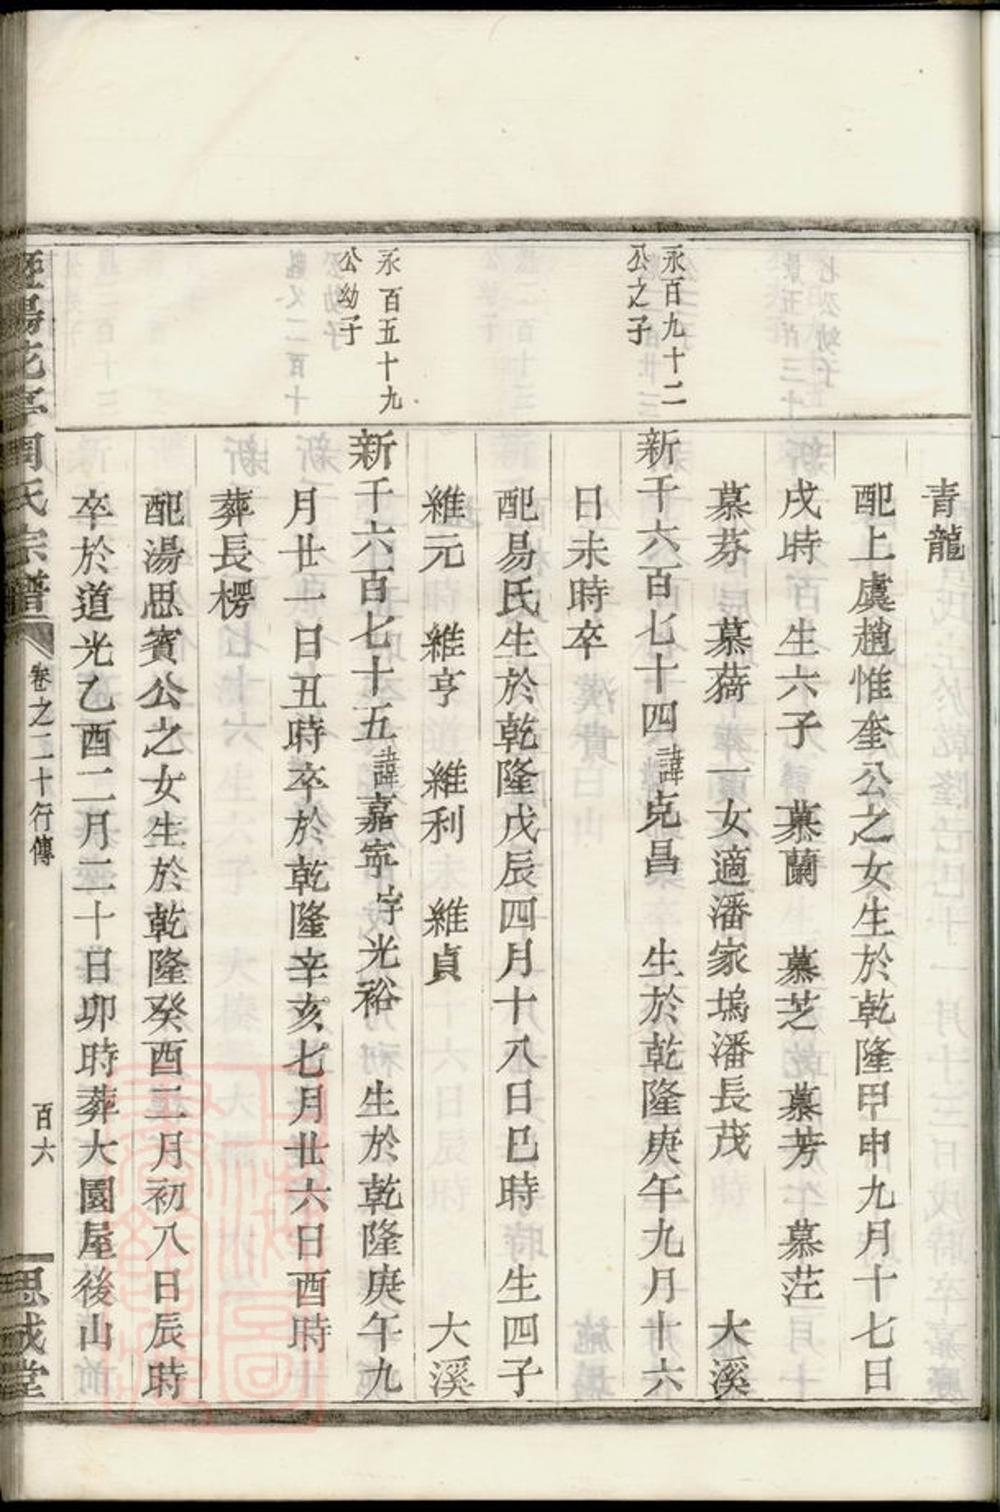 青龍
配上虞趙惟奎公之女生於乾隆甲申九月十七日
戌時　生六子　慕蘭　慕芝　慕芳　慕茳
慕芬　慕蕎　一女適潘家塢潘長茂　大溪
永百九十二
公之子
新千六百七十四諱克昌　生於乾隆庚午九月十六
日未時卒
配易氏生於乾隆戊辰四月十八日巳時　生四子
維元　維亨　維利　維貞　大溪
永百五十九
公幼子
新千六百七十五諱嘉寕字光裕　生於乾隆庚午九
月廿一日丑時卒於乾隆辛亥七月廿六日酉時
葬長楞
配湯思賓公之女生於乾隆癸酉三月初八日辰時
卒於道光乙酉二月二十日卯時葬大園屋後山
花亭周氏宗譜　卷之二十行傳　百六　思成堂